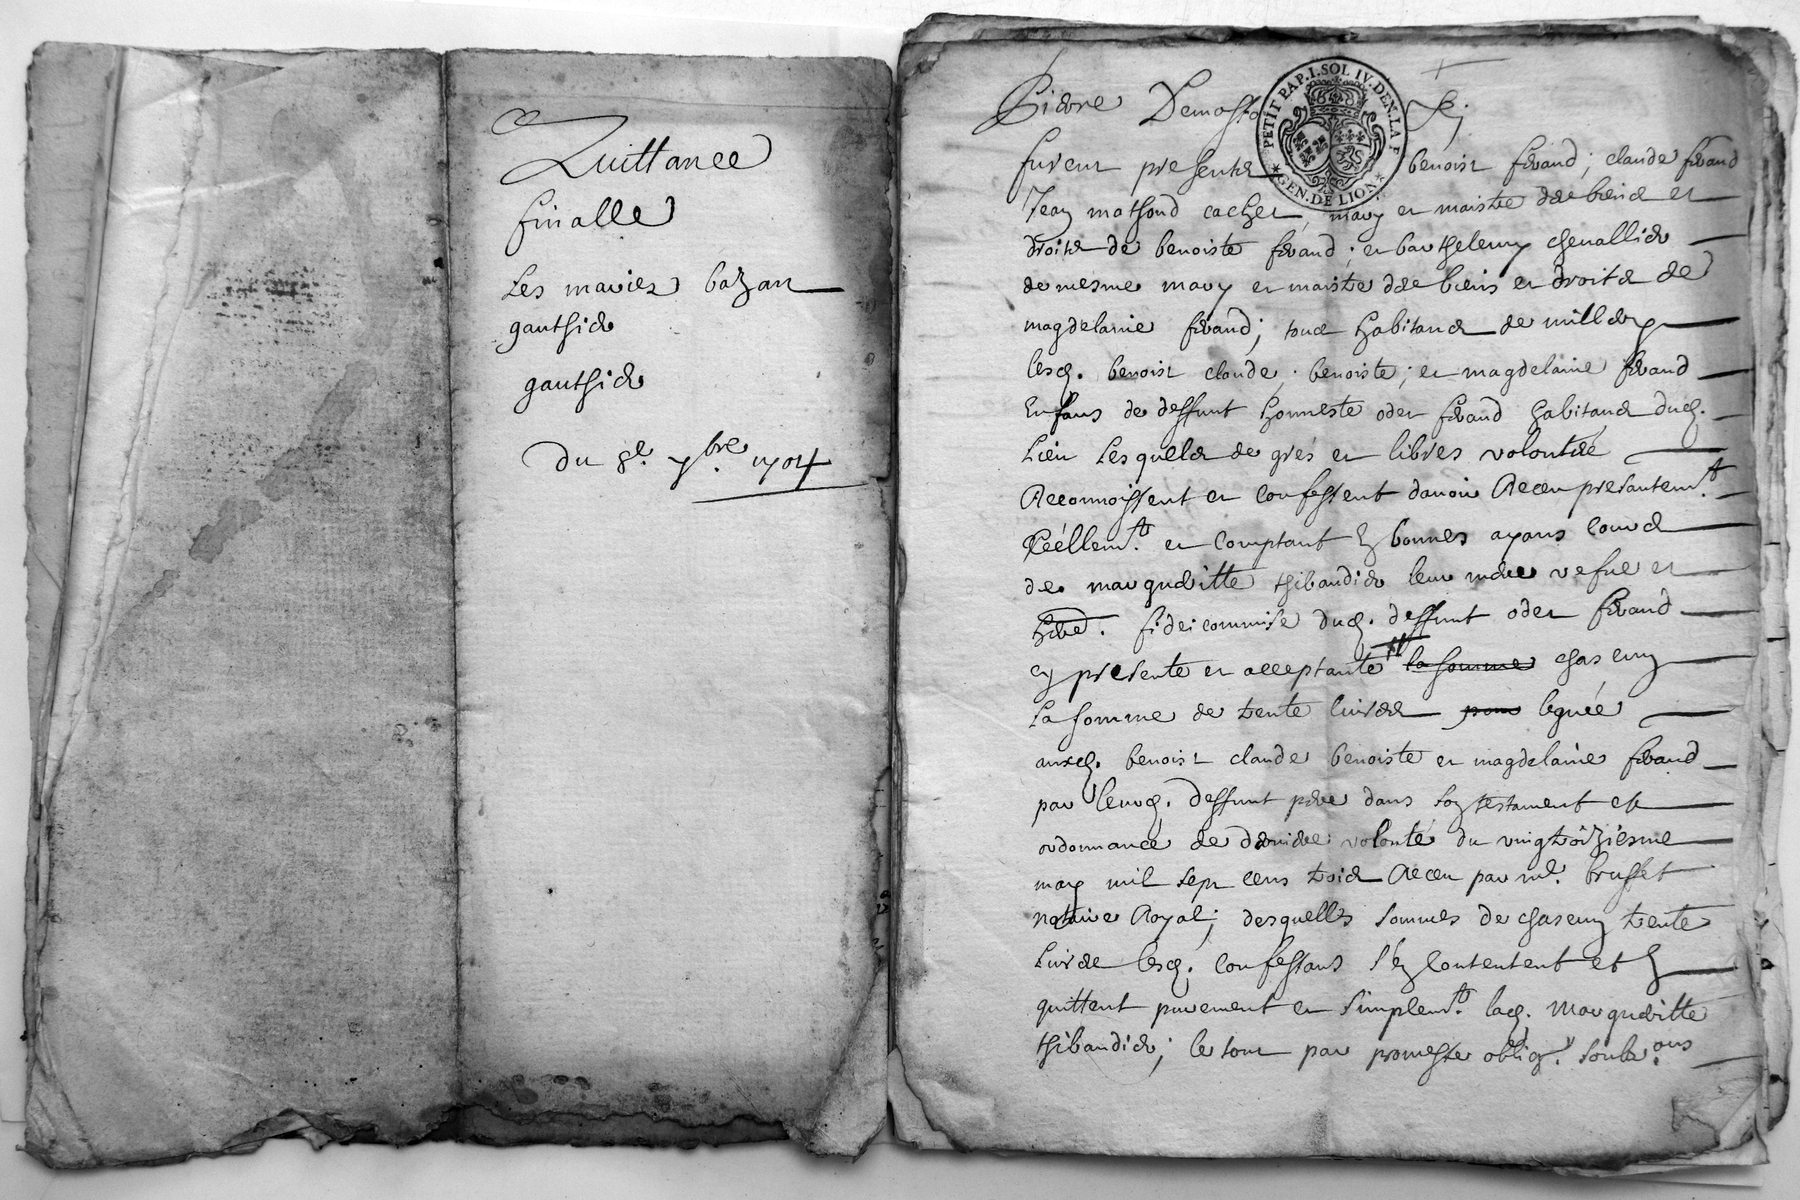 Quittance
finalle
Les mariez bazan
gauthier
gauthier
du 8e 7bre 1704
PETIT PAP. I. SOL IV. DEN. LA F
GEN. DE LION
furent presentz benoist feraud; claude feraud
Jean mathoud cacher mary et maistre des biens et
droitz de benoiste feraud; et barthelemy chevallier
de mesme mary et maistre des biens et droitz de
magdelaine feraud; tous habitans de millery
lesd. benoist claude; benoiste; et magdelaine feraud
Enfans de deffunt honneste odet feraud habitans dud.
Lieu Lesquelz de grés et libres volontés
Reconnoissent et confessent davoir Receu presantemt
Réellemt et comptant en bonnes ayans cours
de margueritte thibaudier leur mere vefve et
fideicommise dud. deffunt odet feraud
cy presente et acceptante la somme chascung
La somme de trente livres pour leguée
auxd. benoist claude benoiste et magdelaine feraud
par leurd. deffunt pere dans son testament et
ordonnance de derniere volonté du vingtroiziesme
may mil sept cens trois Receu par me. brusset
notaire Royal; desquelles sommes de chascung trente
Livres lesd. confessans s'en contentent et en
quittent purement et simplemt. lad. margueritte
thibaudier; le tout par promesse oblig.